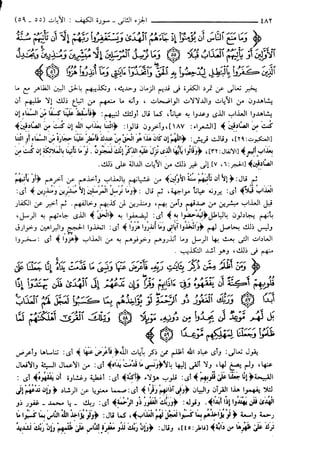 ٤٨٢ ــــــ الجزء الثاني - سورة الكهف : الآيات (٥٥ - ٥٩)
﴿وَمَا مَنَعَ النَّاسَ أَن يُؤْمِنُوا إِذْ جَاءَهُمُ الْهُدَى وَيَسْتَغْفِرُوا رَبَّهُمْ إِلَّا أَن تَأْتِيَهُمْ سُنَّةُ
الْأَوَّلِينَ أَوْ يَأْتِيَهُمُ الْعَذَابُ قُبُلًا ﴿٥٥﴾ وَمَا نُرْسِلُ الْمُرْسَلِينَ إِلَّا مُبَشِّرِينَ وَمُنذِرِينَ
يخبر تعالى عن تمرد الكفرة في قديم الزمان وحديثه، وتكذيبهم بالحق البين الظاهر مع ما
يشاهدون من الآيات والدلالات الواضحات ، وأنه ما منعهم من اتباع ذلك إلا طلبهم أن
يشاهدوا العذاب الذي وعدوا به عياناً، كما قال أولئك لنبيهم: ﴿فَأَسْقِطْ عَلَيْنَا كِسَفًا مِّنَ السَّمَاءِ إِن
كُنتَ مِنَ الصَّادِقِينَ﴾ [الشعراء: ١٨٧]، وآخرون قالوا: ﴿ائْتِنَا بِعَذَابِ اللَّهِ إِن كُنتَ مِنَ الصَّادِقِينَ﴾
[العنكبوت: ٢٩]، وقالت قريش: ﴿اللَّهُمَّ إِن كَانَ هَذَا هُوَ الْحَقَّ مِنْ عِندِكَ فَأَمْطِرْ عَلَيْنَا حِجَارَةً مِّنَ السَّمَاءِ أَوِ ائْتِنَا
بِعَذَابٍ أَلِيمٍ﴾ [الأنفال: ٣٢]، ﴿وَقَالُوا يَا أَيُّهَا الَّذِي نُزِّلَ عَلَيْهِ الذِّكْرُ إِنَّكَ لَمَجْنُونٌ لَّوْ مَا تَأْتِينَا بِالْمَلَائِكَةِ إِن كُنتَ مِنَ
الصَّادِقِينَ﴾ [الحجر: ٦، ٧] إلى غير ذلك من الآيات الدالة على ذلك.
ثم قال: ﴿إِلَّا أَن تَأْتِيَهُمْ سُنَّةُ الْأَوَّلِينَ﴾ من غشيانهم بالعذاب وأخذهم عن آخرهم ﴿أَوْ يَأْتِيَهُمُ
الْعَذَابُ قُبُلًا﴾ أي: يرونه عياناً مواجهة، ثم قال: ﴿وَمَا نُرْسِلُ الْمُرْسَلِينَ إِلَّا مُبَشِّرِينَ وَمُنذِرِينَ﴾ أي:
قبل العذاب مبشرين من صدقهم وآمن بهم، ومنذرين لمن كذبهم وخالفهم. ثم أخبر عن الكفار
بأنهم يجادلون بالباطل ﴿لِيُدْحِضُوا بِهِ﴾ أي: ليضعفوا به ﴿الْحَقَّ﴾ الذي جاءتهم به الرسل،
وليس ذلك بحاصل لهم ﴿وَاتَّخَذُوا آيَاتِي وَمَا أُنذِرُوا هُزُوًا﴾ أي: اتخذوا الحجج والبراهين وخوارق
العادات التي بعث بها الرسل وما أنذروهم وخوفوهم به من العذاب ﴿هُزُوًا﴾ أي: سخروا
منهم في ذلك، وهو أشد التكذيب.
﴿وَمَنْ أَظْلَمُ مِمَّن ذُكِّرَ بِآيَاتِ رَبِّهِ فَأَعْرَضَ عَنْهَا وَنَسِيَ مَا قَدَّمَتْ يَدَاهُ إِنَّا جَعَلْنَا عَلَى
قُلُوبِهِمْ أَكِنَّةً أَن يَفْقَهُوهُ وَفِي آذَانِهِمْ وَقْرًا وَإِن تَدْعُهُمْ إِلَى الْهُدَى فَلَن يَهْتَدُوا إِذًا أَبَدًا
﴿٥٧﴾ وَرَبُّكَ الْغَفُورُ ذُو الرَّحْمَةِ لَوْ يُؤَاخِذُهُم بِمَا كَسَبُوا لَعَجَّلَ لَهُمُ الْعَذَابَ
بَل لَّهُم مَّوْعِدٌ لَّن يَجِدُوا مِن دُونِهِ مَوْئِلًا ﴿٥٨﴾ وَتِلْكَ الْقُرَى أَهْلَكْنَاهُمْ لَمَّا
ظَلَمُوا وَجَعَلْنَا لِمَهْلِكِهِم مَّوْعِدًا ﴿٥٩﴾
يقول تعالى: وأي عباد الله أظلم ممن ذكر بآيات الله ﴿فَأَعْرَضَ عَنْهَا﴾ أي: تناساها وأعرض
عنها، ولم يصغ لها، ولا ألقى إليها بالاً ﴿وَنَسِيَ مَا قَدَّمَتْ يَدَاهُ﴾ أي: من الأعمال السيئة والأفعال
القبيحة ﴿إِنَّا جَعَلْنَا عَلَى قُلُوبِهِمْ﴾ أي: قلوب هؤلاء ﴿أَكِنَّةً﴾ أي: أغطية وغشاوة ﴿أَن يَفْقَهُوهُ﴾ أي:
لئلا يفهموا هذا القرآن والبيان ﴿وَفِي آذَانِهِمْ وَقْرًا﴾ أي: صمماً معنوياً عن الرشاد ﴿وَإِن تَدْعُهُمْ إِلَى
الْهُدَى فَلَن يَهْتَدُوا إِذًا أَبَدًا﴾. وقوله: ﴿وَرَبُّكَ الْغَفُورُ ذُو الرَّحْمَةِ﴾ أي: ربك - يا محمد - غفور ذو
رحمة واسعة ﴿لَوْ يُؤَاخِذُهُم بِمَا كَسَبُوا لَعَجَّلَ لَهُمُ الْعَذَابَ﴾، كما قال: ﴿وَلَوْ يُؤَاخِذُ اللَّهُ النَّاسَ بِمَا كَسَبُوا مَا
تَرَكَ عَلَى ظَهْرِهَا مِن دَابَّةٍ﴾ [فاطر: ٤٥]، وقال: ﴿وَإِنَّ رَبَّكَ لَذُو مَغْفِرَةٍ لِّلنَّاسِ عَلَى ظُلْمِهِمْ وَإِنَّ رَبَّكَ لَشَدِيدُ